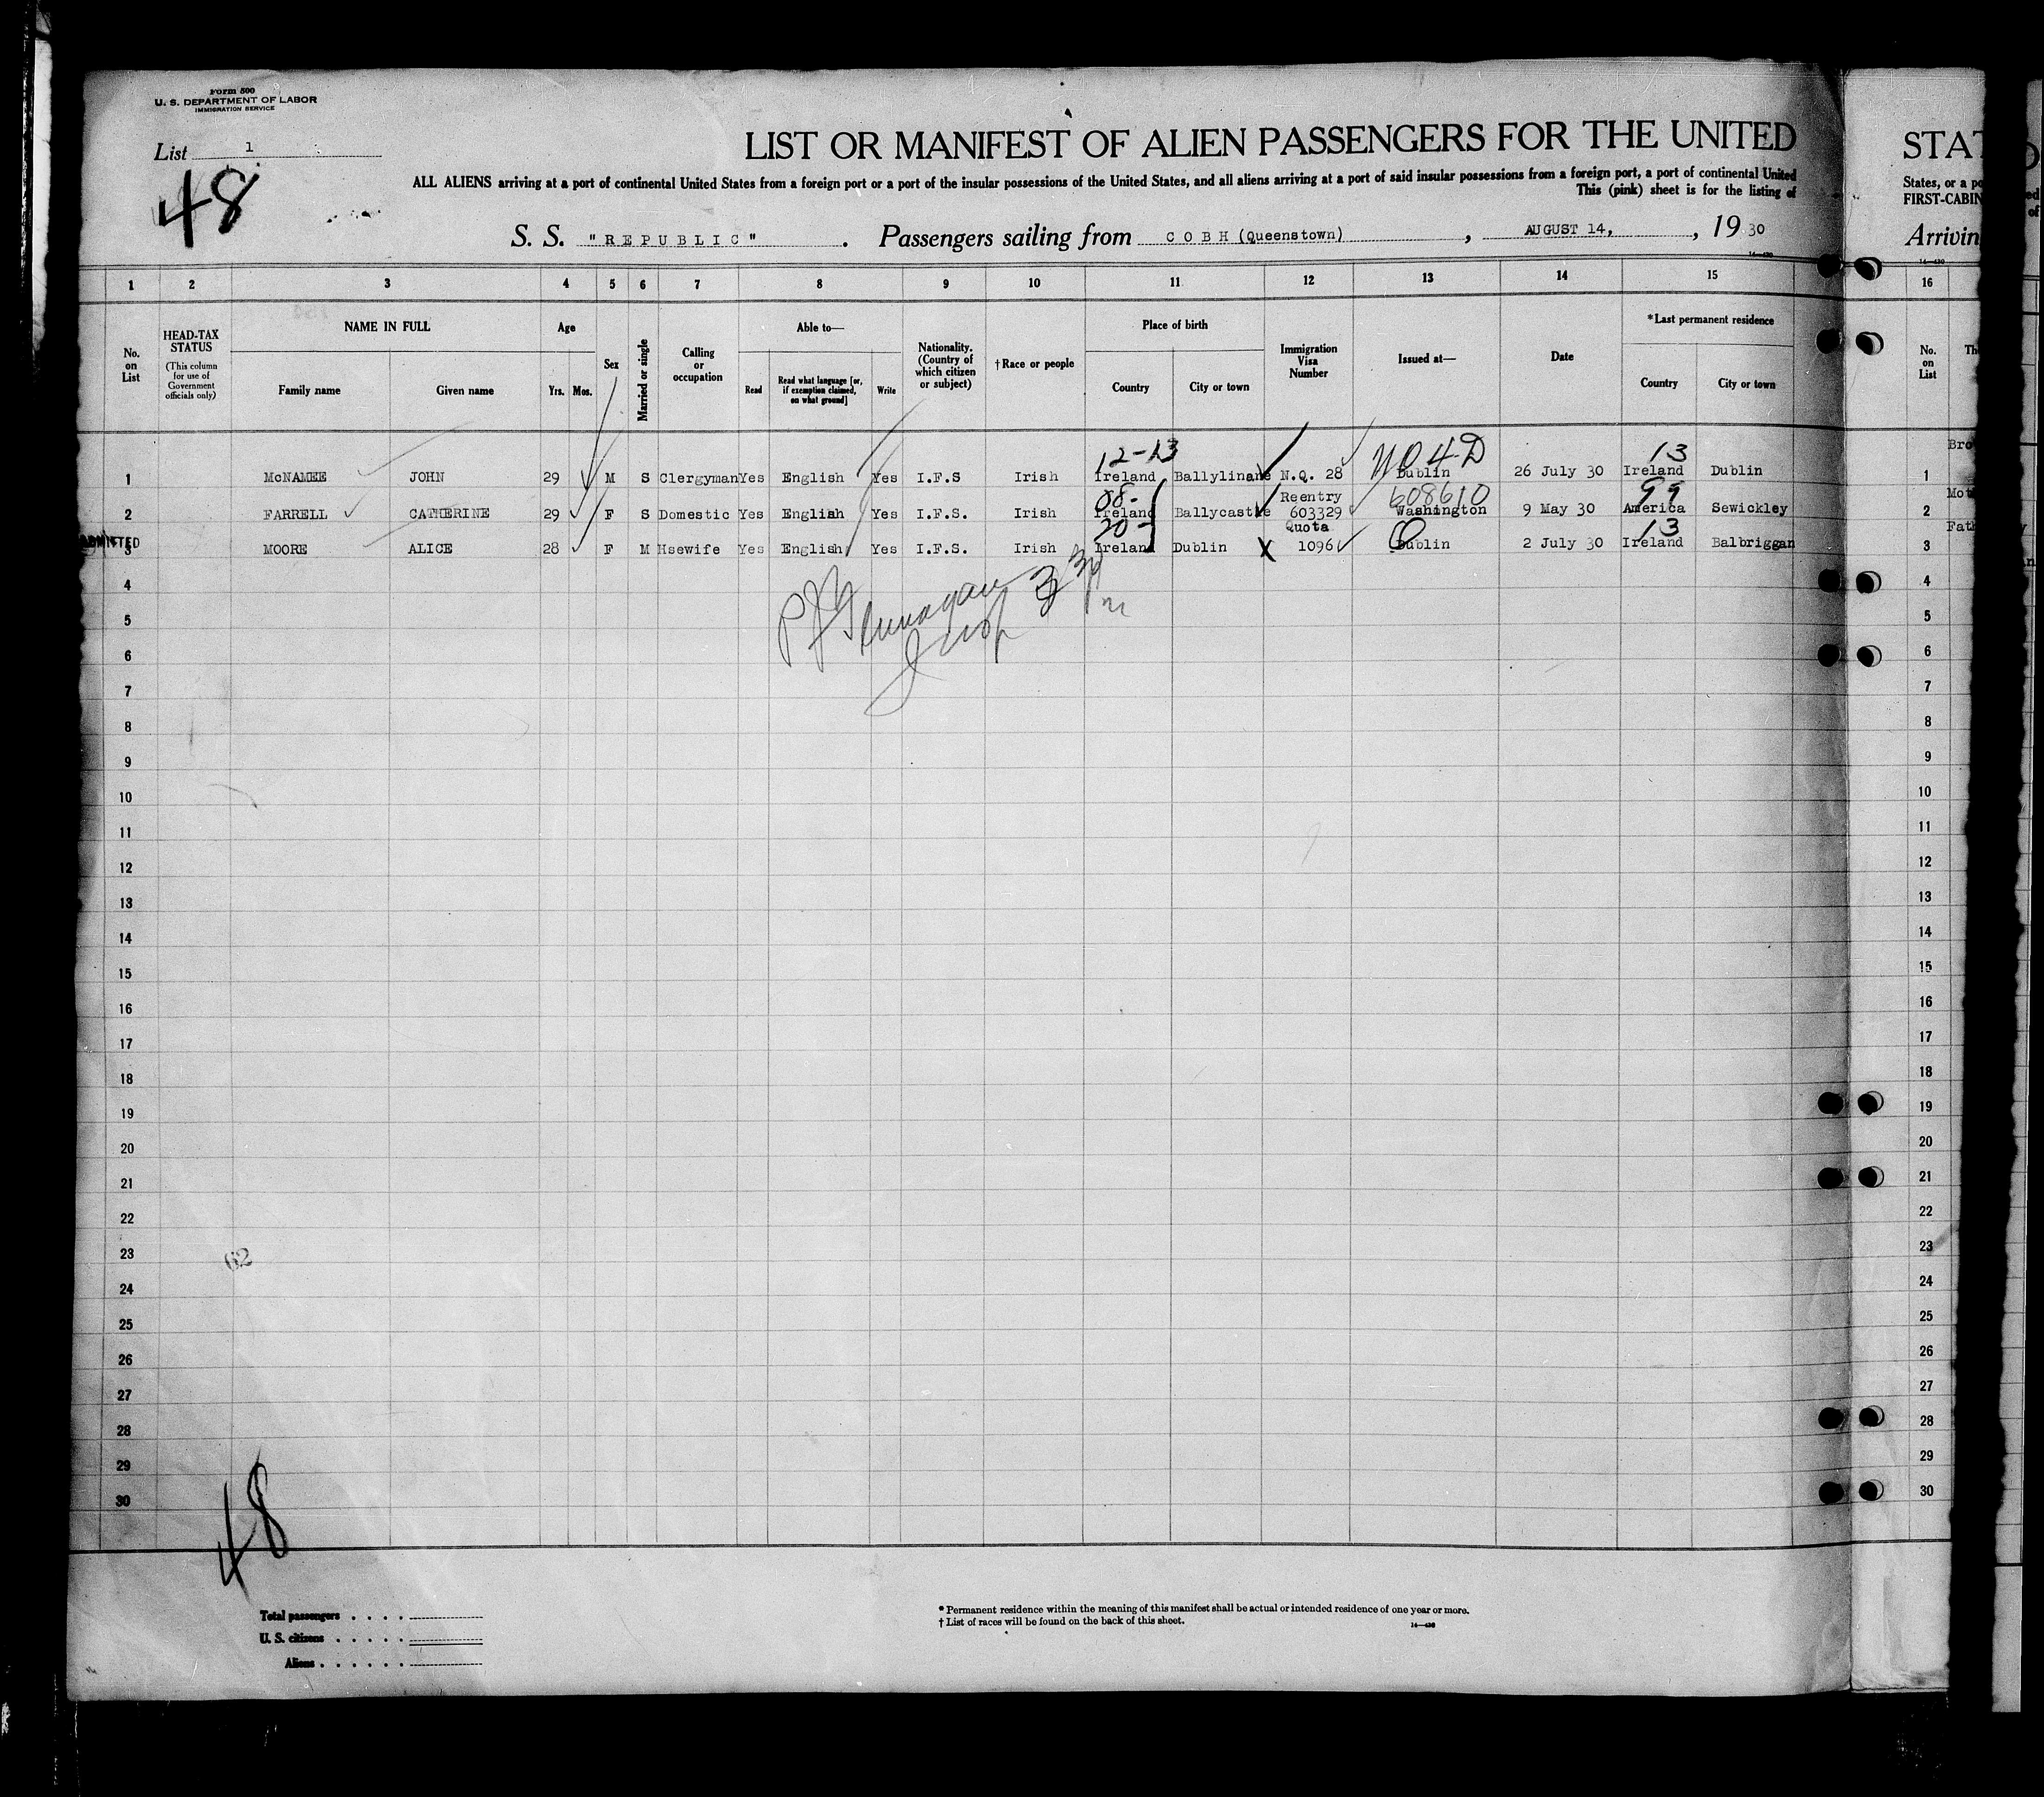 Form 500
U. S. DEPARTMENT OF LABOR
IMMIGRATION SERVICE
List 1
48
LIST OR MANIFEST OF ALIEN PASSENGERS FOR THE UNITED
ALL ALIENS arriving at a port of continental United States from a foreign port or a port of the insular possessions of the United States, and all aliens arriving at a port of said insular possessions from a foreign port, a port of continental United
This (pink) sheet is for the listing of
S. S. "REPUBLIC" . Passengers sailing from COBH (Queenstown) , AUGUST 14, , 19 30
14—430
1 2 3 4 5 6 7 8 9 10 11 12 13 14 15
No. on List
HEAD-TAX STATUS
(This column for use of Government officials only)
NAME IN FULL
Family name Given name
Age
Yrs. Mos.
Sex
Married or single
Calling or occupation
Able to—
Read
Read what language [or, if exemption claimed, on what ground]
Write
Nationality. (Country of which citizen or subject)
†Race or people
Place of birth
Country City or town
Immigration Visa Number
Issued at—
Date
*Last permanent residence
Country City or town
12-13 13
1 McNAMEE JOHN 29 M S Clergyman Yes English Yes I.F.S Irish Ireland Ballylinane N.Q. 28 Dublin 26 July 30 Ireland Dublin
08- Reentry 608610 99
2 FARRELL CATHERINE 29 F S Domestic Yes English Yes I.F.S. Irish Ireland Ballycastle 603329 Washington 9 May 30 America Sewickley
ADMITTED 20- Quota 13
3 MOORE ALICE 28 F M Hsewife Yes English Yes I.F.S. Irish Ireland Dublin X 1096 Dublin 2 July 30 Ireland Balbriggan
4
5
6
7
8
9
10
11
12
13
14
15
16
17
18
19
20
21
22
23
62
24
25
26
27
28
29
30
48
Total passengers . . . .
U. S. citizens . . . . .
Aliens . . . . . .
* Permanent residence within the meaning of this manifest shall be actual or intended residence of one year or more.
† List of races will be found on the back of this sheet.
14—430
STAT
States, or a po
FIRST-CABIN
Arrivin
14—430
16
No. on List
Th
Bro
1
Mot
2
Fath
3
4
5
6
7
8
9
10
11
12
13
14
15
16
17
18
19
20
21
22
23
24
25
26
27
28
29
30